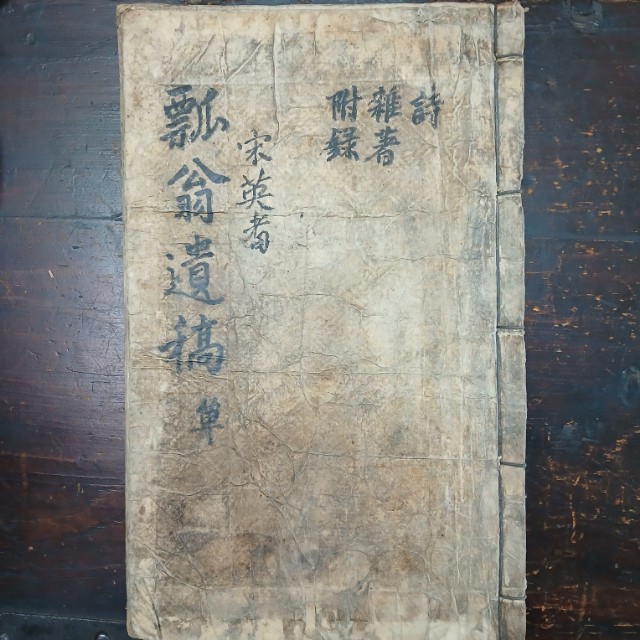 詩
雜著
附錄
宋英耈
瓢翁遺稿 單